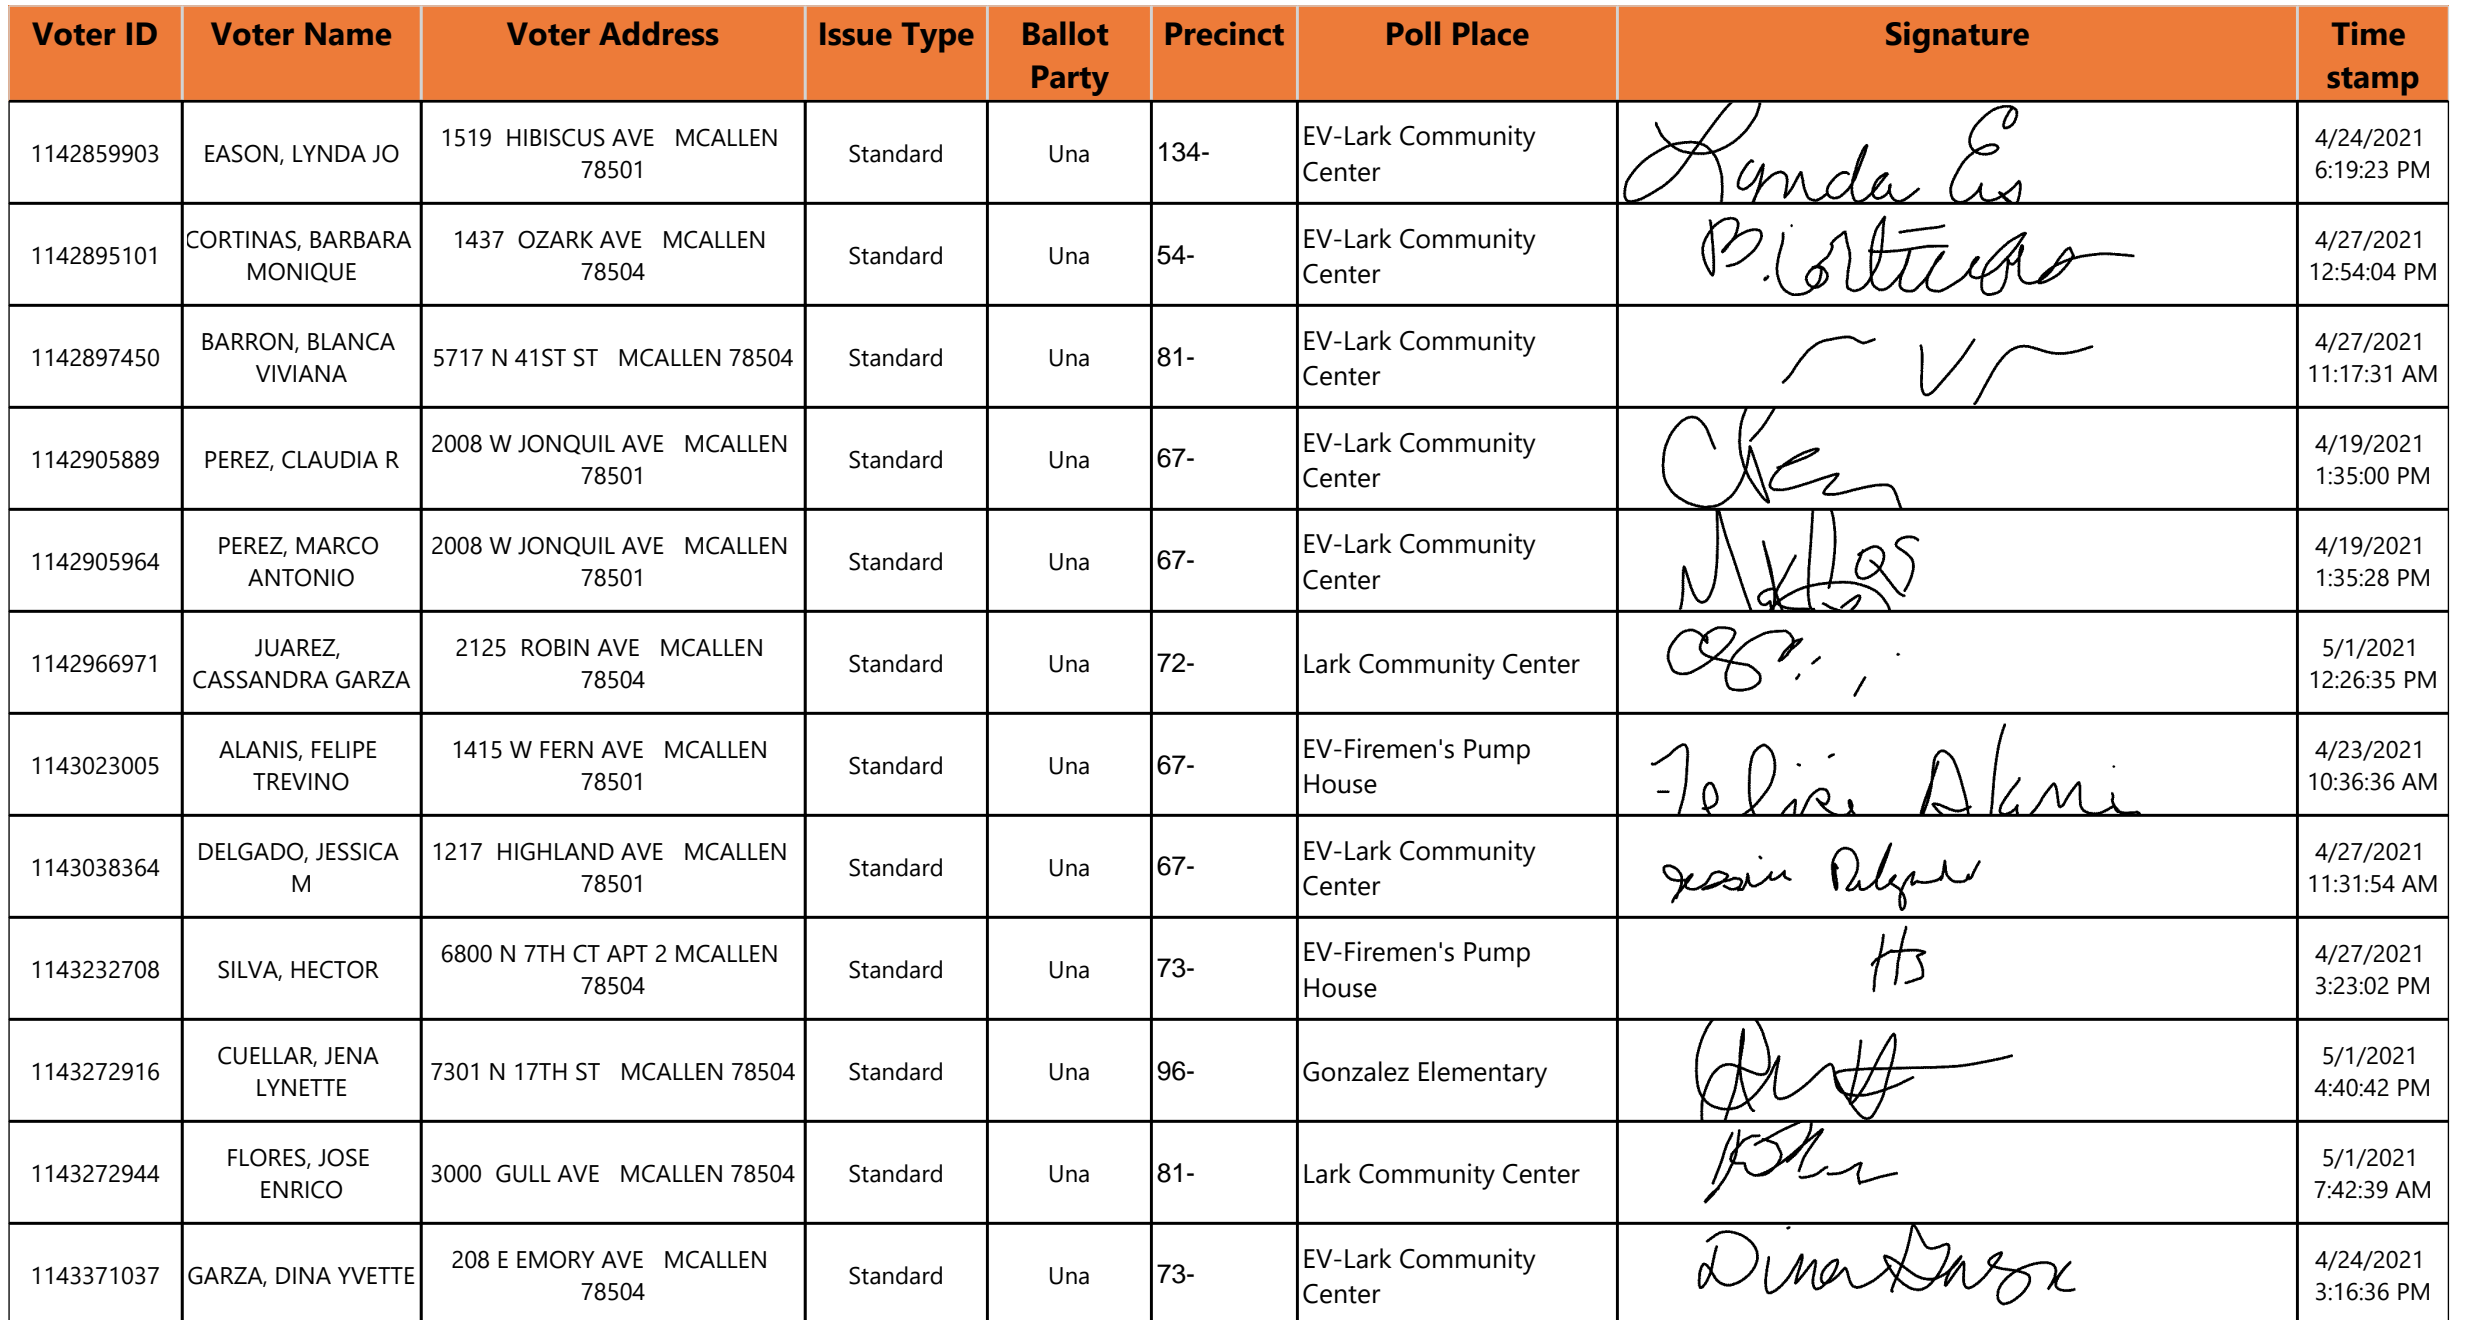 Voter ID Voter Name Voter Address Issue Type Ballot Party Precinct Poll Place Signature Time stamp
1142859903 EASON, LYNDA JO 1519 HIBISCUS AVE MCALLEN 78501 Standard Una 134- EV-Lark Community Center Lynda Es 4/24/2021 6:19:23 PM
1142895101 CORTINAS, BARBARA MONIQUE 1437 OZARK AVE MCALLEN 78504 Standard Una 54- EV-Lark Community Center B. Cortinas 4/27/2021 12:54:04 PM
1142897450 BARRON, BLANCA VIVIANA 5717 N 41ST ST MCALLEN 78504 Standard Una 81- EV-Lark Community Center 4/27/2021 11:17:31 AM
1142905889 PEREZ, CLAUDIA R 2008 W JONQUIL AVE MCALLEN 78501 Standard Una 67- EV-Lark Community Center 4/19/2021 1:35:00 PM
1142905964 PEREZ, MARCO ANTONIO 2008 W JONQUIL AVE MCALLEN 78501 Standard Una 67- EV-Lark Community Center 4/19/2021 1:35:28 PM
1142966971 JUAREZ, CASSANDRA GARZA 2125 ROBIN AVE MCALLEN 78504 Standard Una 72- Lark Community Center 5/1/2021 12:26:35 PM
1143023005 ALANIS, FELIPE TREVINO 1415 W FERN AVE MCALLEN 78501 Standard Una 67- EV-Firemen's Pump House Felipe Alanis 4/23/2021 10:36:36 AM
1143038364 DELGADO, JESSICA M 1217 HIGHLAND AVE MCALLEN 78501 Standard Una 67- EV-Lark Community Center Jessica Delgado 4/27/2021 11:31:54 AM
1143232708 SILVA, HECTOR 6800 N 7TH CT APT 2 MCALLEN 78504 Standard Una 73- EV-Firemen's Pump House HS 4/27/2021 3:23:02 PM
1143272916 CUELLAR, JENA LYNETTE 7301 N 17TH ST MCALLEN 78504 Standard Una 96- Gonzalez Elementary 5/1/2021 4:40:42 PM
1143272944 FLORES, JOSE ENRICO 3000 GULL AVE MCALLEN 78504 Standard Una 81- Lark Community Center 5/1/2021 7:42:39 AM
1143371037 GARZA, DINA YVETTE 208 E EMORY AVE MCALLEN 78504 Standard Una 73- EV-Lark Community Center Dina Garza 4/24/2021 3:16:36 PM